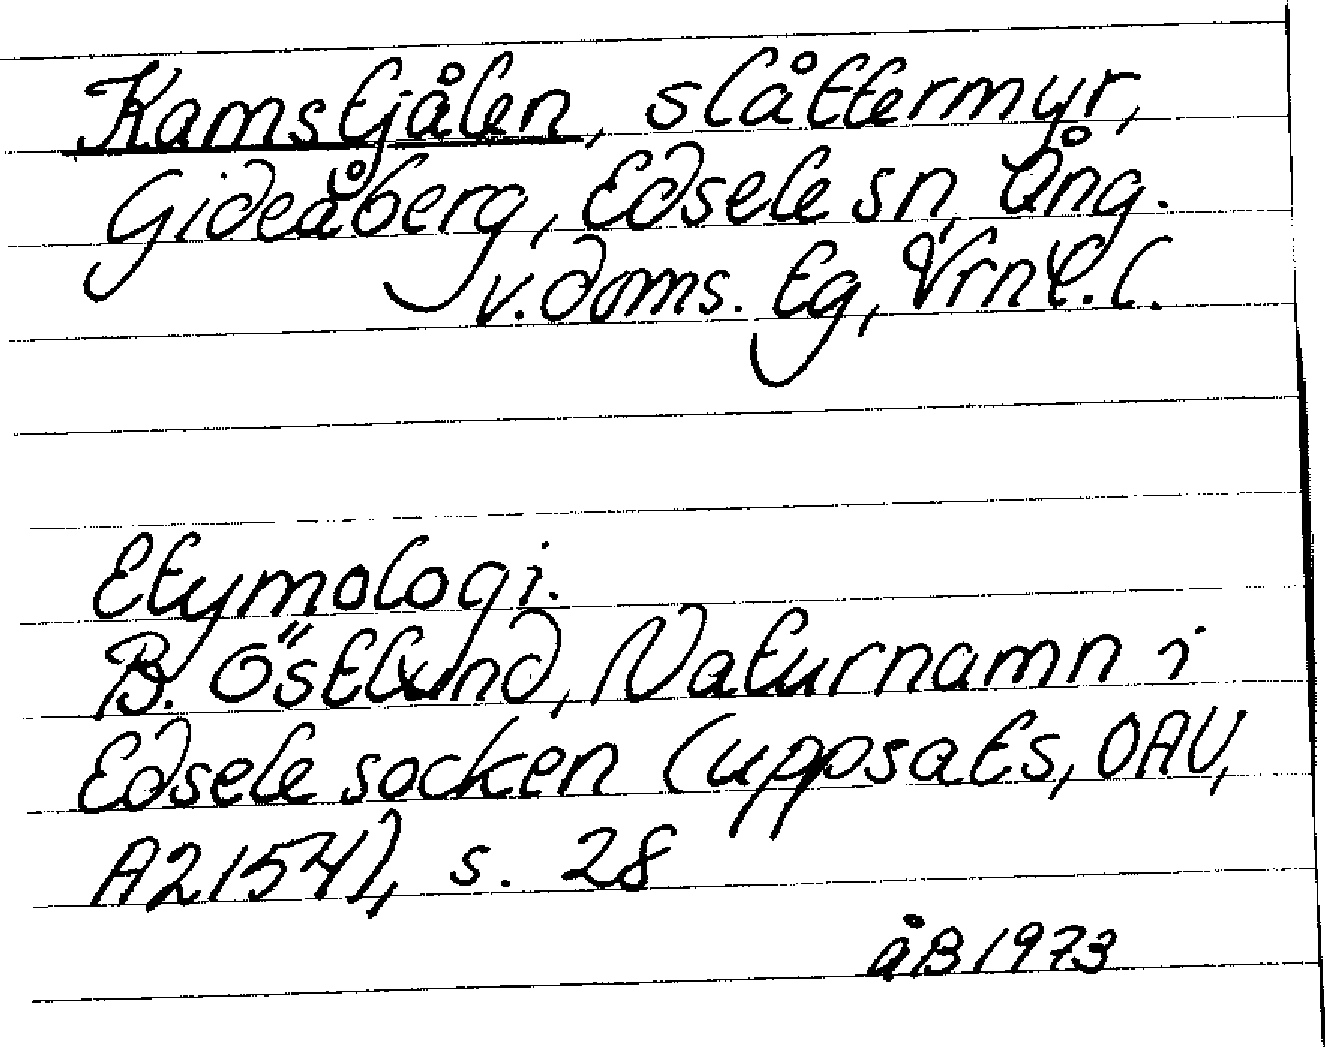 Kamstjålen, slåttermyr,
Gideåberg, Edsele sn, Ång.
v. doms. tg, Vrnl. l.
Etymologi.
B. Östlund, Naturnamn i
Edsele socken (uppsats, OAU,
A2154), s. 28
åB 1973